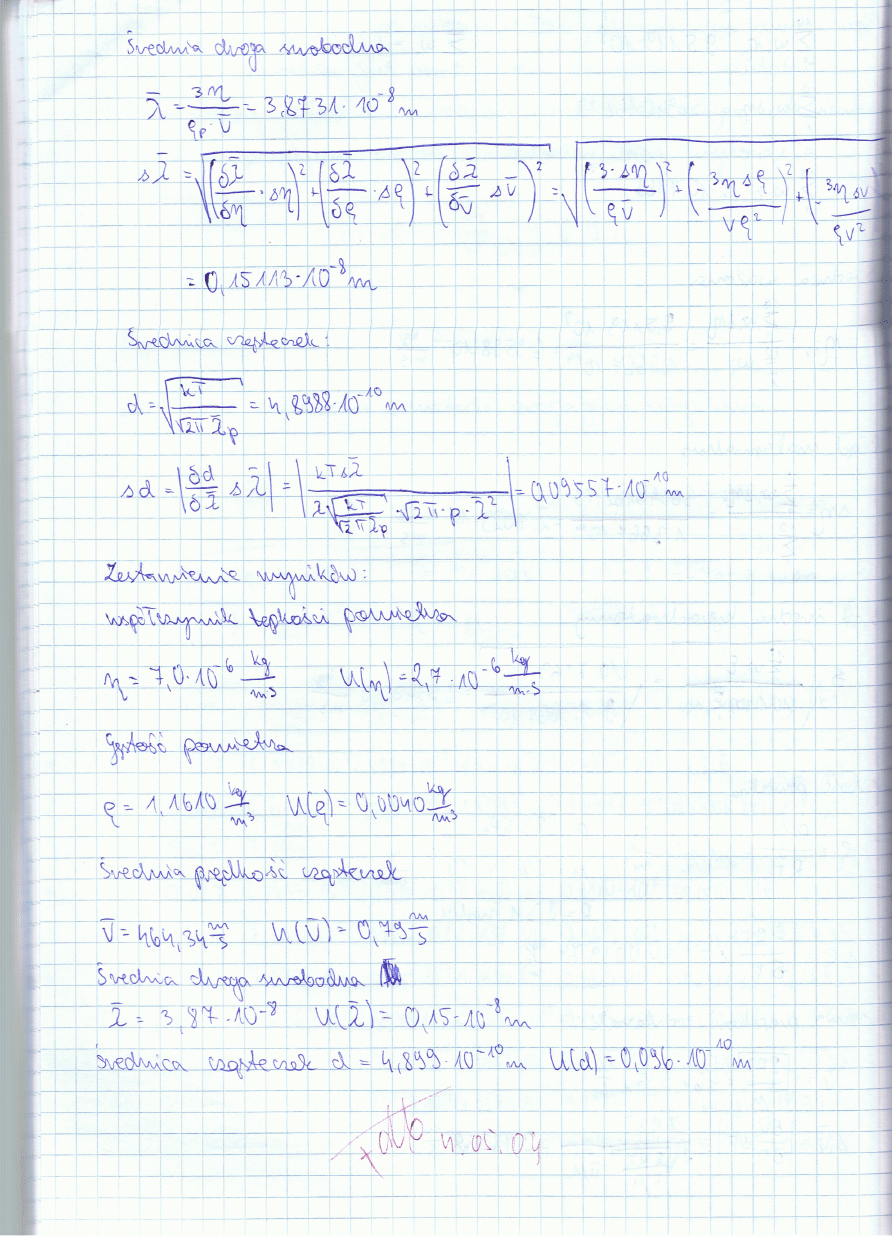 Średnia droga swobodna
λ̄ = 3η / (ρ_p · v̄) = 3,8731·10⁻⁸ m
sλ̄ = √((δλ̄/δη · sη)² + (δλ̄/δρ · sρ)² + (δλ̄/δv̄ sv̄)²) = √((3·sη/ρv̄)² + (-3ηsρ/vρ²)² + (-3ηsv/ρv²
= 0,15113·10⁻⁸ m
Średnica cząsteczek:
d = √(kT / (√2π λ̄p)) = 4,8988·10⁻¹⁰ m
sd = |δd/δλ̄ sλ̄| = |kTsλ̄ / (2√(kT/(√2πλ̄p)) · √2π·p·λ̄²)| = 0,09557·10⁻¹⁰ m
Zestawienie wyników:
współczynnik lepkości powietrza
η = 7,0·10⁻⁶ kg/ms U(η) = 2,7·10⁻⁶ kg/m·s
Gęstość powietrza
ρ = 1,1610 kg/m³ U(ρ) = 0,0040 kg/m³
Średnia prędkość cząsteczek
v̄ = 464,34 m/s U(v̄) = 0,79 m/s
Średnia droga swobodna
λ̄ = 3,87·10⁻⁸ U(λ̄) = 0,15·10⁻⁸ m
Średnica cząsteczek d = 4,899·10⁻¹⁰ m U(d) = 0,096·10⁻¹⁰ m
+db 4.05.04